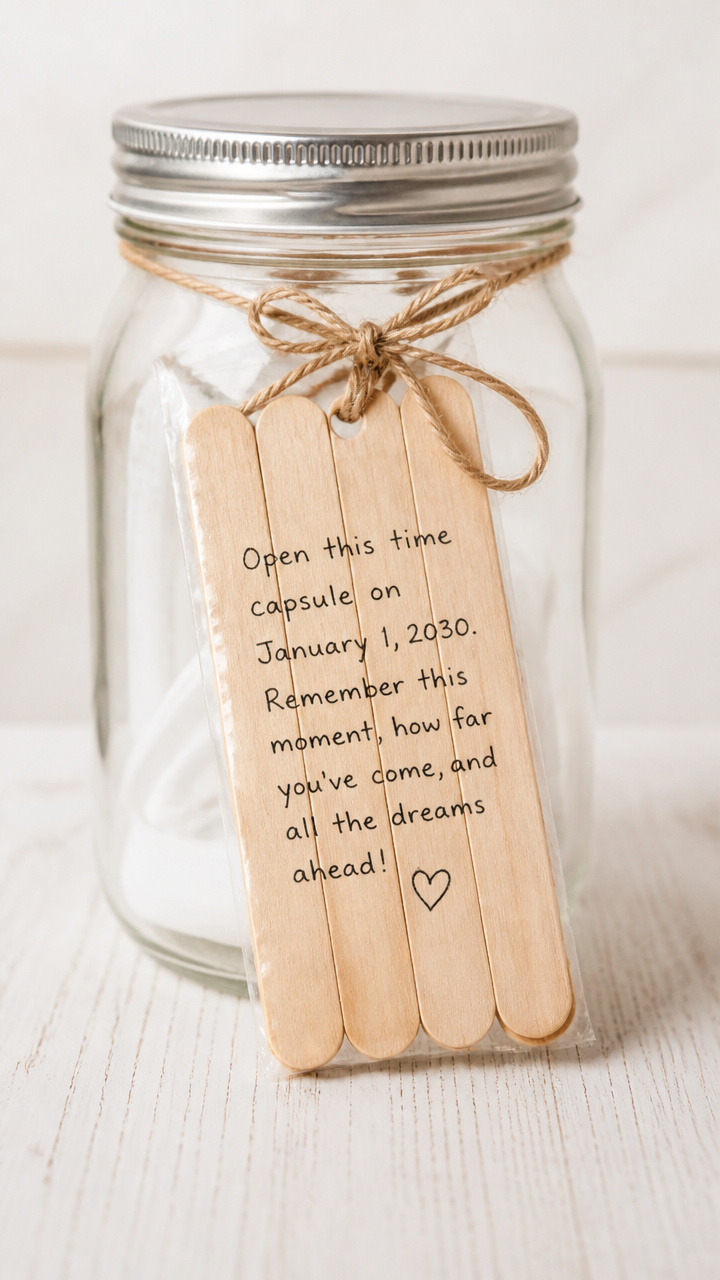 Open this time
capsule on
January 1, 2030.
Remember this
moment, how far
you've come, and
all the dreams
ahead!